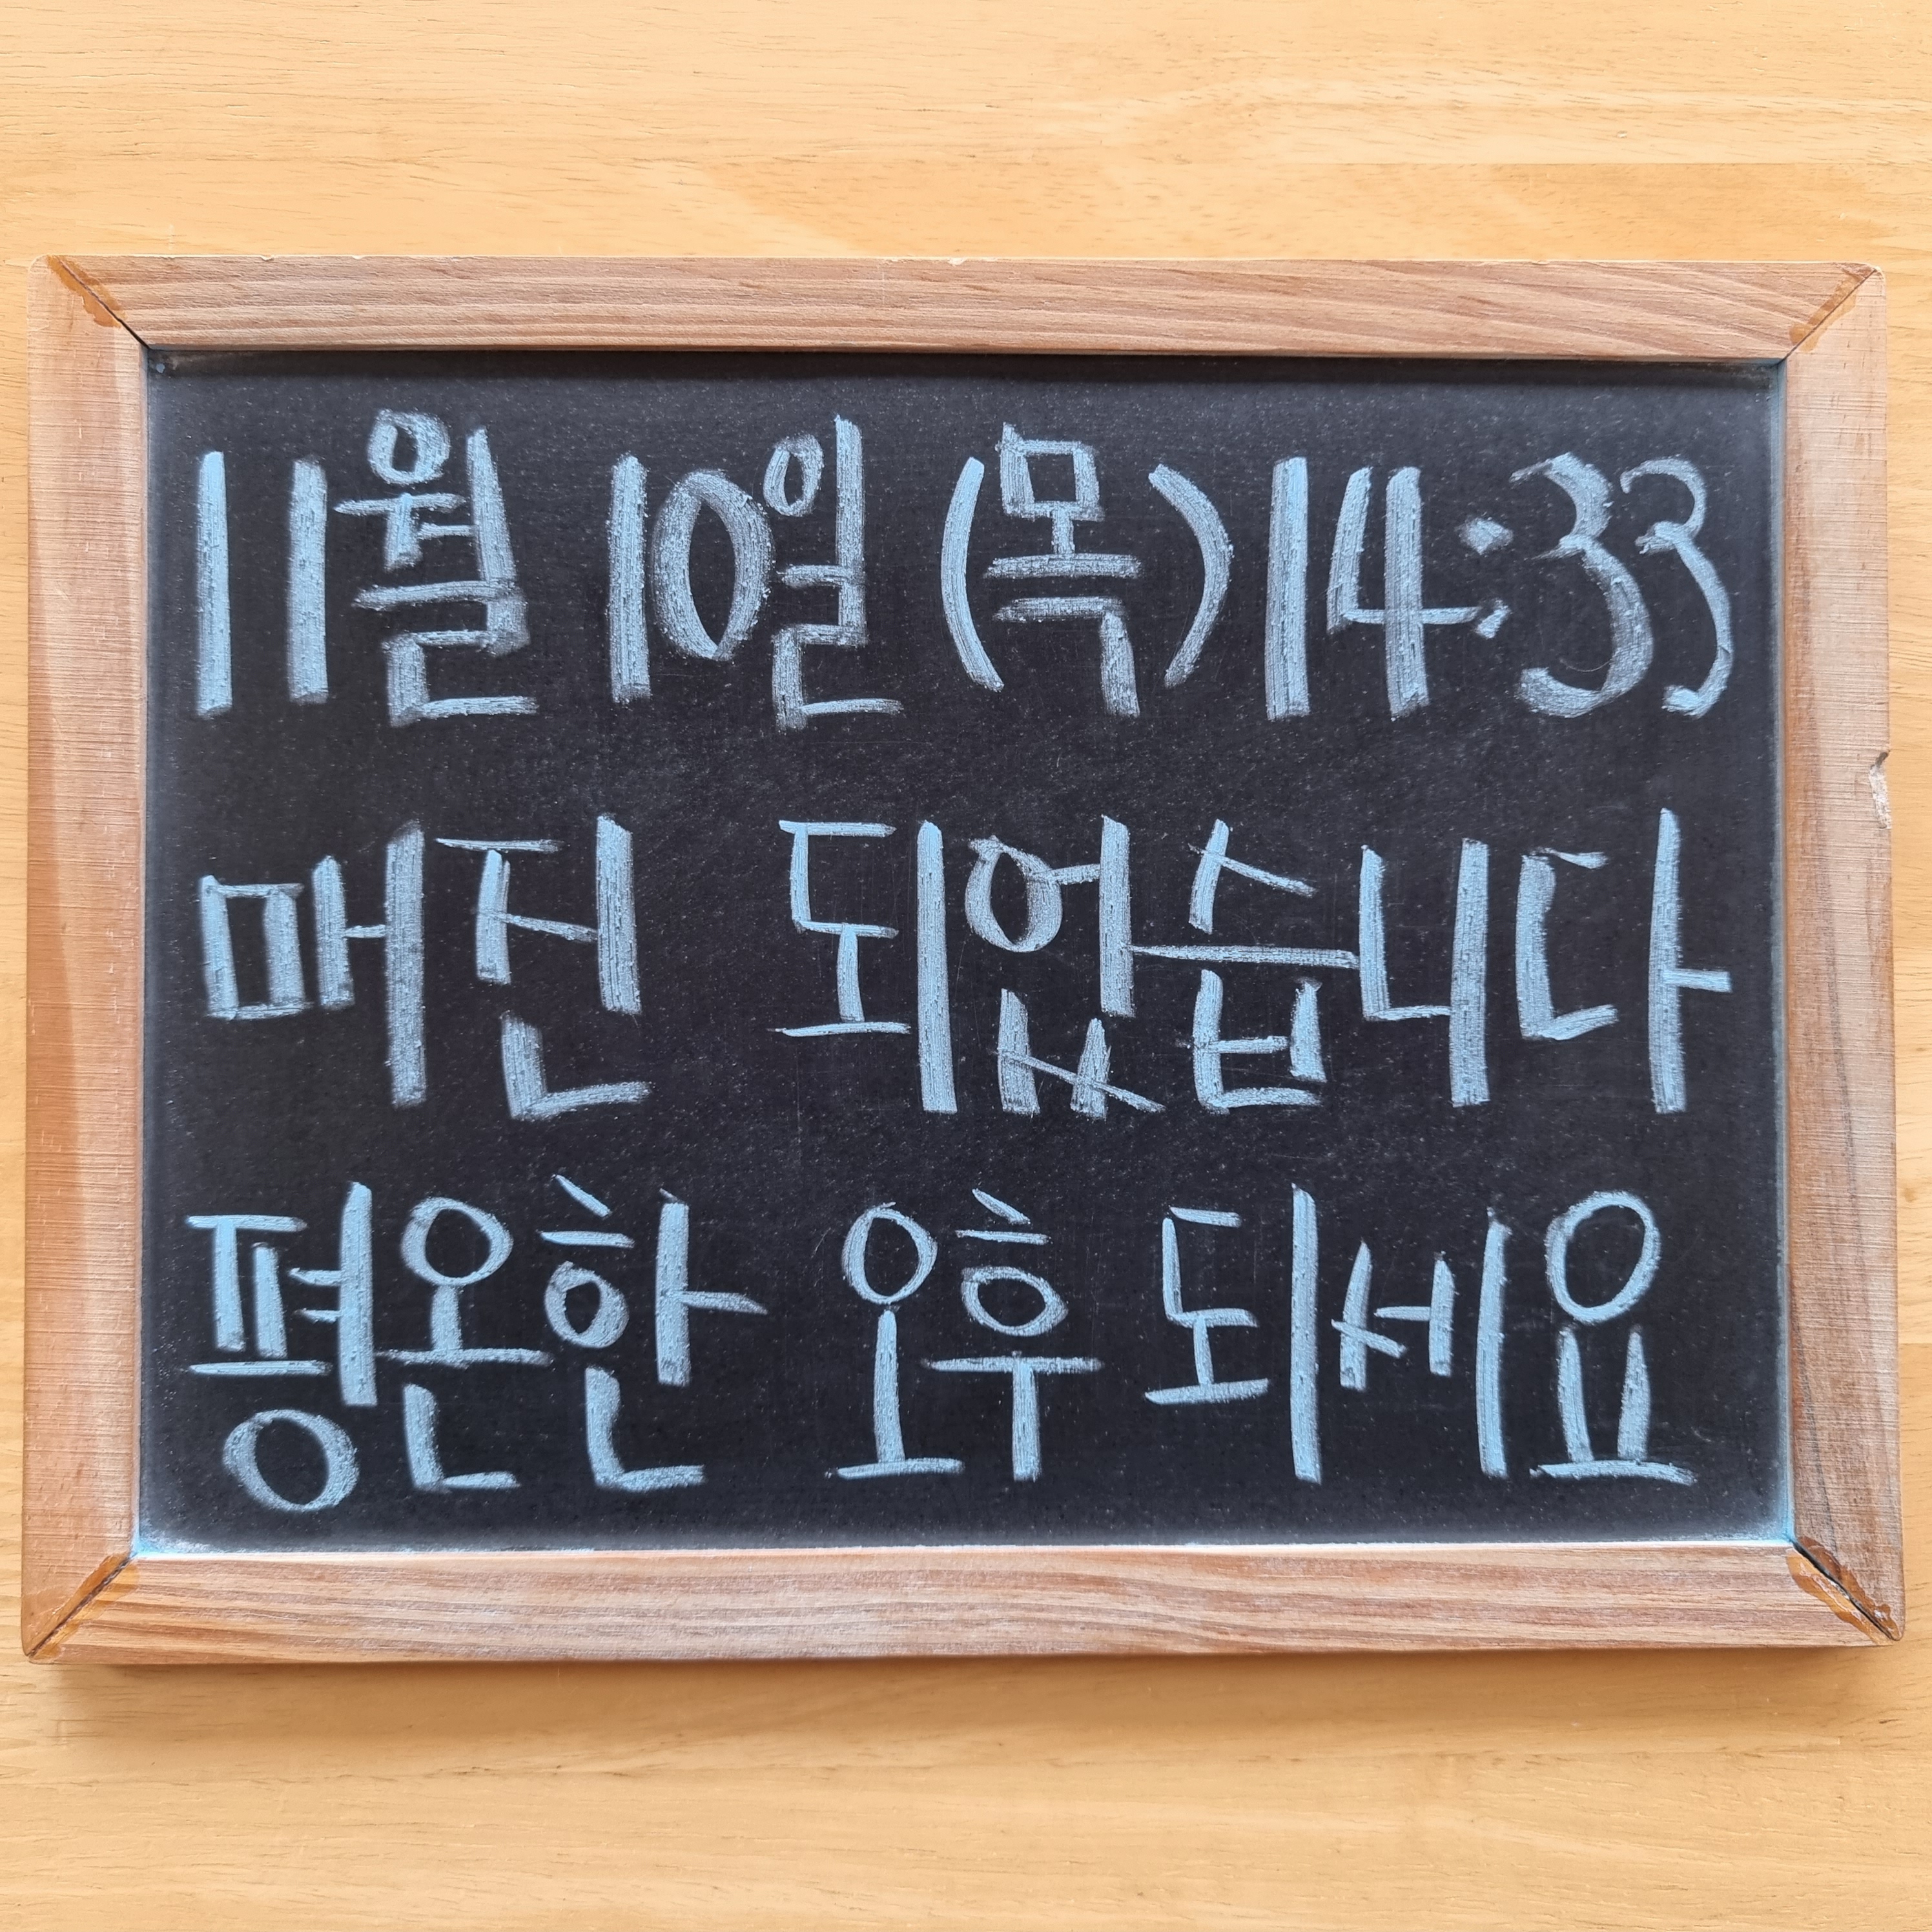 11월 10일 (목) 14:33
매진 되었습니다
평온한 오후 되세요